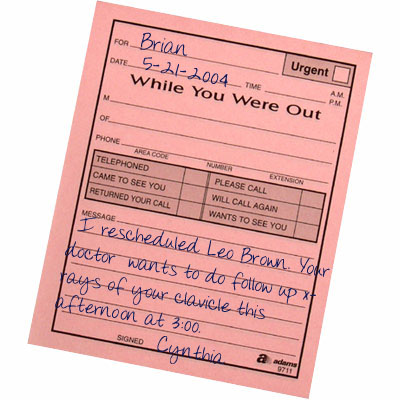 FOR Brian
Urgent
DATE 5-21-2004 TIME A.M.
P.M.
While You Were Out
M
OF
PHONE
AREA CODE NUMBER EXTENSION
TELEPHONED PLEASE CALL
CAME TO SEE YOU WILL CALL AGAIN
RETURNED YOUR CALL WANTS TO SEE YOU
MESSAGE
I rescheduled Leo Brown. Your
doctor wants to do follow up x-
rays of your clavicle this
afternoon at 3:00.
SIGNED Cynthia
a adams
9711